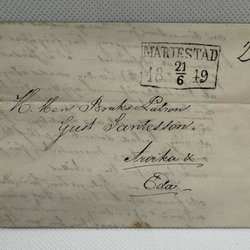 MARIESTAD
18 21/6 49
H. Herr Bruks Patron
Gust Santesson
Arvika &
Eda